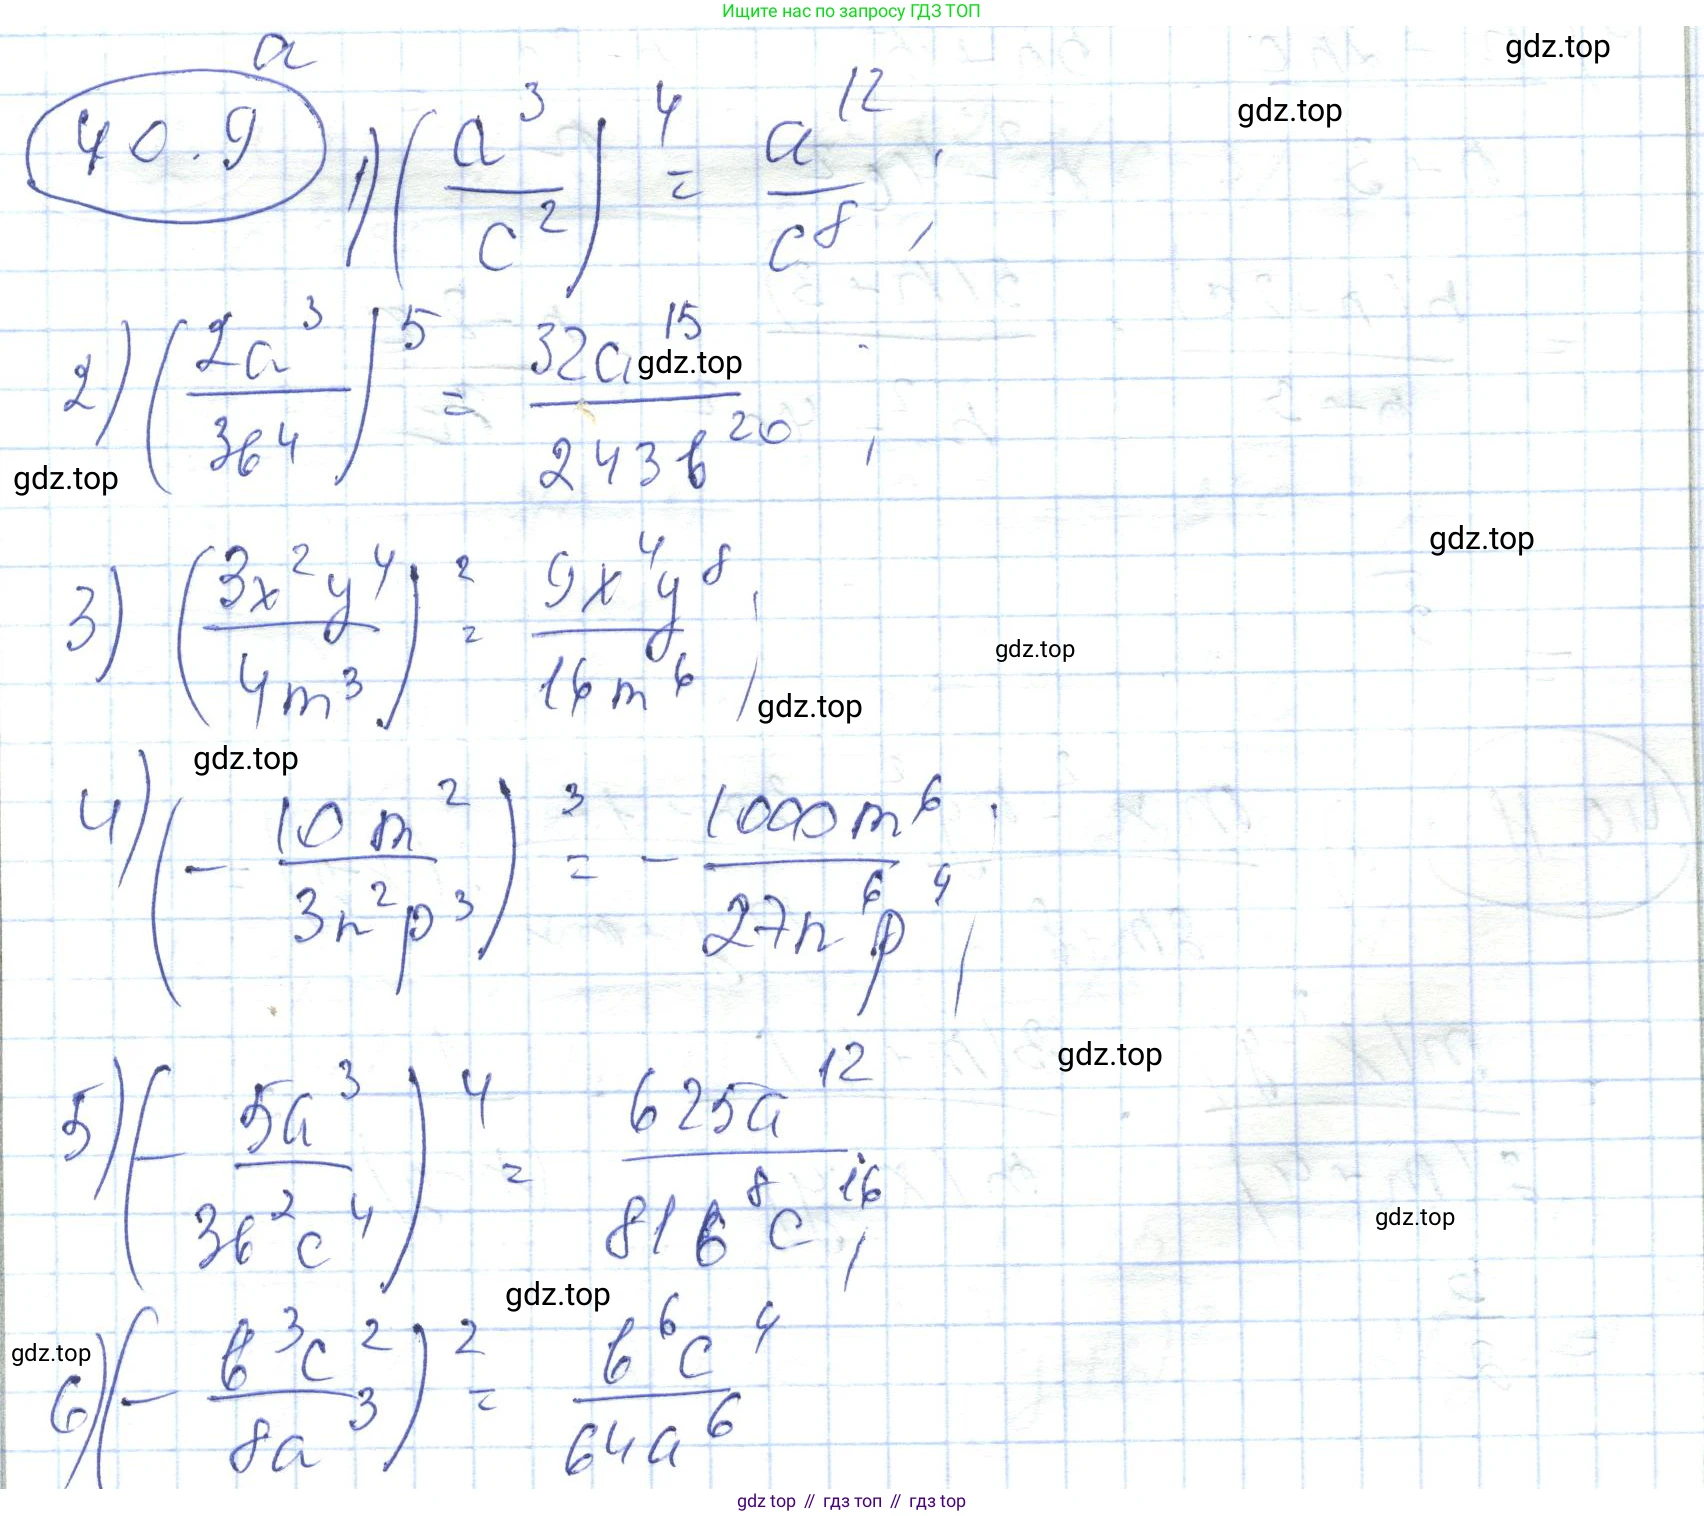 Ищите нас по запросу ГДЗ ТОП
a
40.9 1) (a^3 / c^2)^4 = a^12 / c^8 ;
2) (2a^3 / 3b^4)^5 = 32a^15 / 243b^20 ;
3) (3x^2y^4 / 4m^3)^2 = 9x^4y^8 / 16m^6 ;
4) (- 10m^2 / 3n^2p^3)^3 = - 1000m^6 / 27n^6p^9 ;
5) (- 5a^3 / 3b^2c^4)^4 = 625a^12 / 81b^8c^16 ;
6) (- b^3c^2 / 8a^3)^2 = b^6c^4 / 64a^6
gdz.top
gdz.top
gdz.top
gdz.top
gdz.top
gdz.top
gdz.top
gdz.top
gdz.top
gdz.top
gdz.top
gdz.top
gdz top // гдз топ // гдз top